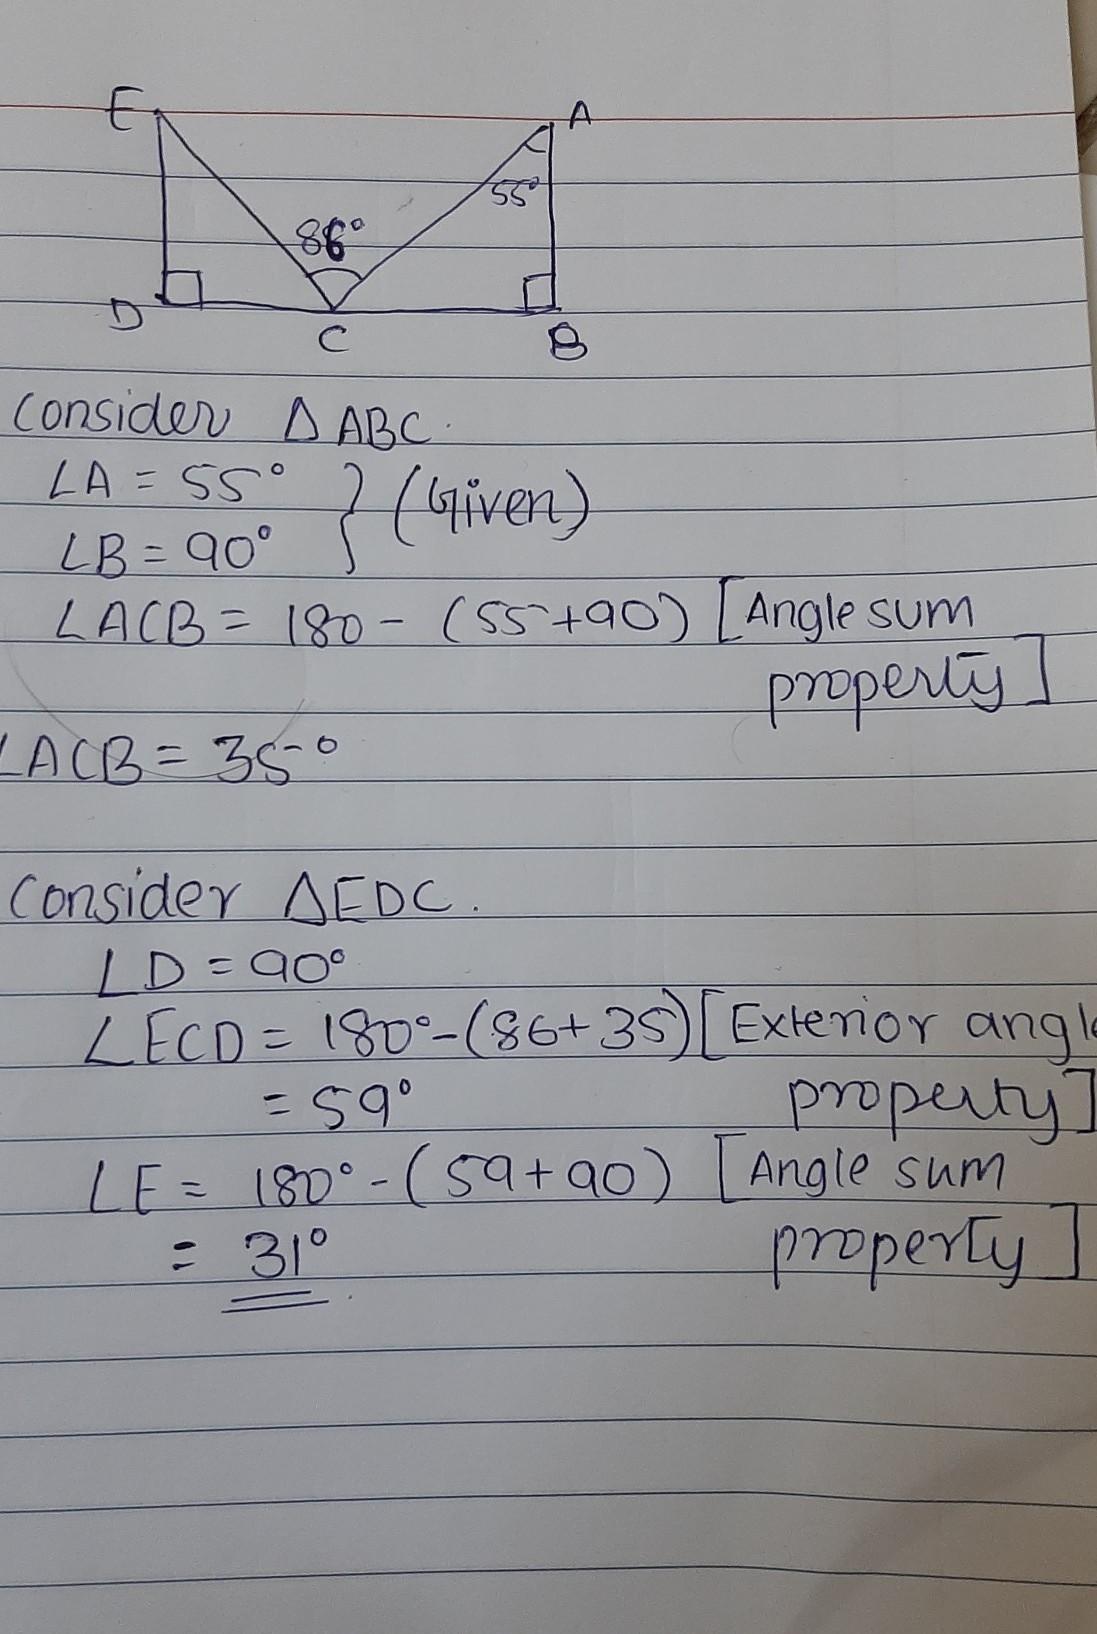 E
A
55°
86°
D
C
B
Consider ΔABC.
∠A = 55° } (Given)
∠B = 90°
∠ACB = 180 - (55+90) [Angle sum
property]
∠ACB = 35°
Consider ΔEDC.
∠D = 90°
∠ECD = 180° - (86+35) [Exterior angle
= 59° property]
∠E = 180° - (59+90) [Angle sum
= 31° property]